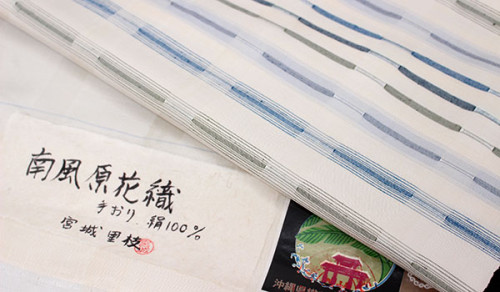 南風原花織
手おり 絹100%
宮城里枝
沖縄県